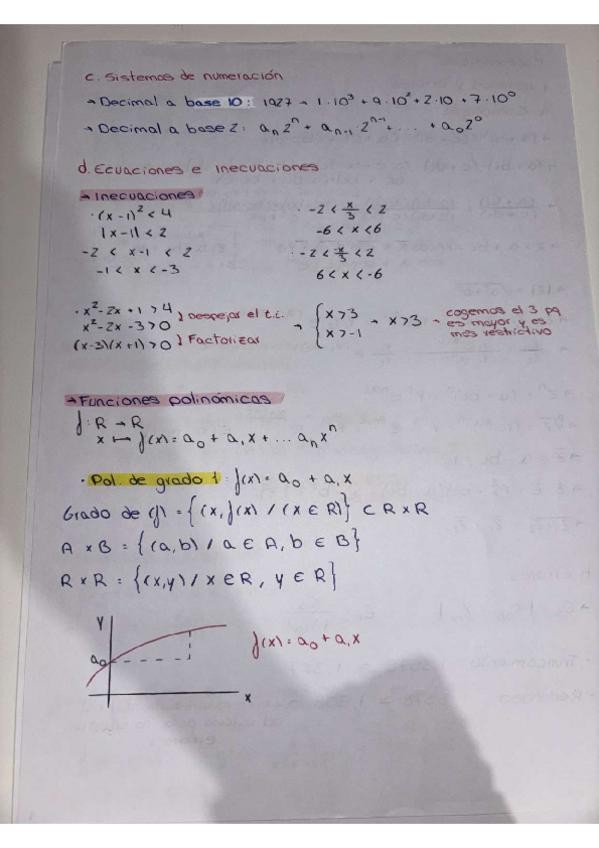 c. Sistemas de numeración
→ Decimal a base 10: 1927 → 1·10³ + 9·10² + 2·10 + 7·10⁰
→ Decimal a base 2: aₙ2ⁿ + aₙ₋₁·2ⁿ⁻¹ + ... + a₀2⁰
d. Ecuaciones e inecuaciones
→ Inecuaciones
· (x-1)² < 4
|x-1| < 2
-2 < x-1 < 2
-1 < x < -3
· -2 < x/3 < 2
-6 < x < 6
· -2 < -x/3 < 2
6 < x < -6
· x² - 2x + 1 > 4
x² - 2x - 3 > 0
(x-3)(x+1) > 0
) Despejar el t.i.
) Factorizar
→ { x > 3
x > -1
→ x > 3 → cogemos el 3 pq
es mayor y es
más restrictivo
→ Funciones polinómicas
f: R → R
x ↦ f(x) = a₀ + a₁x + ... aₙxⁿ
· Pol. de grado 1: f(x) = a₀ + a₁x
Grado de (f) = {(x, f(x) / (x ∈ R)} ⊂ R × R
A × B = {(a,b) / a ∈ A, b ∈ B}
R × R = {(x,y) / x ∈ R, y ∈ R}
y
a₀
x
f(x) = a₀ + a₁x